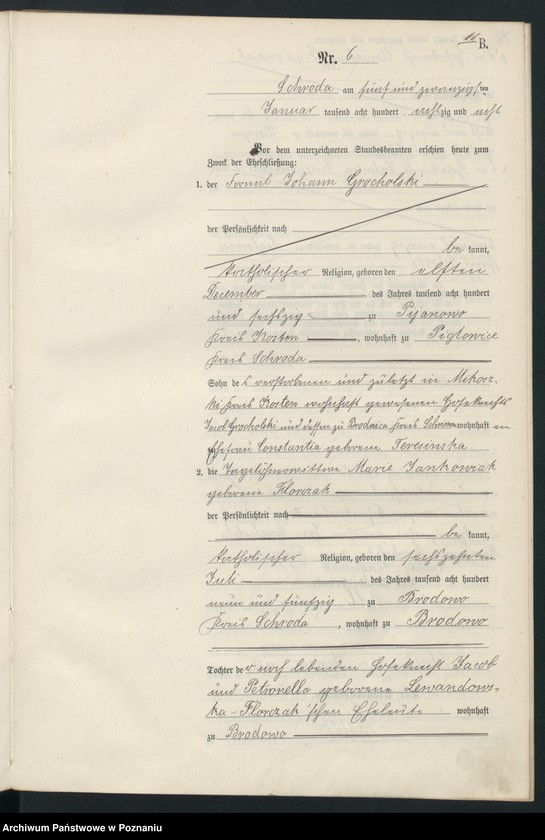 11 B.
Nr. 6
Schroda am fünf und zwanzigsten
Januar tausend acht hundert achtzig und acht
Vor dem unterzeichneten Standesbeamten erschien heute zum
Zweck der Eheschließung:
1. der Fornal Johann Grocholski
der Persönlichkeit nach
be kannt,
katholischer Religion, geboren den elften
December des Jahres tausend acht hundert
und sechszig zu Pijanowo
Kreis Kosten, wohnhaft zu Piglowice
Kreis Schroda
Sohn des verstorbenen und zuletzt in Mikosz-
ki Kreis Kosten wohnhaft gewesenen Hofeknechts
Jacob Grocholski und dessen zu Brodnica Kreis Schrimm wohnhaft en
Ehefrau Constantia geborene Teresinska
2. die Tagelöhnerwittwe Marie Jankowiak
geborene Florczak
der Persönlichkeit nach
be kannt,
katholischer Religion, geboren den sechszehnten
Juli des Jahres tausend acht hundert
neun und fünfzig zu Brodowo
Kreis Schroda, wohnhaft zu Brodowo
Tochter der noch lebenden Hofeknecht Jacob
und Petronella geborene Lewandows-
ka-Florczak'schen Eheleute wohnhaft
zu Brodowo
Archiwum Państwowe w Poznaniu